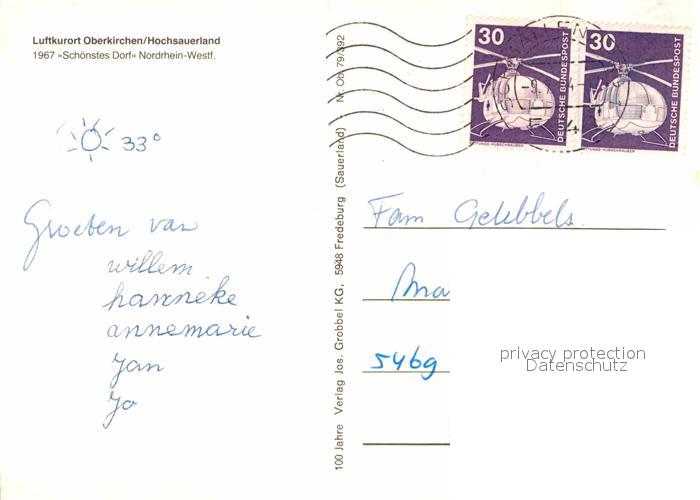 Luftkurort Oberkirchen/Hochsauerland
1967 »Schönstes Dorf« Nordrhein-Westf.
33°
Groeten van
willem
hanneke
annemarie
Jan
Jo
100 Jahre Verlag Jos. Grobbel KG, 5948 Fredeburg (Sauerland) Nr. Ob 79/392
30
DEUTSCHE BUNDESPOST
30
DEUTSCHE BUNDESPOST
RETTUNGS-HUBSCHRAUBER
Fam
privacy protection
Datenschutz